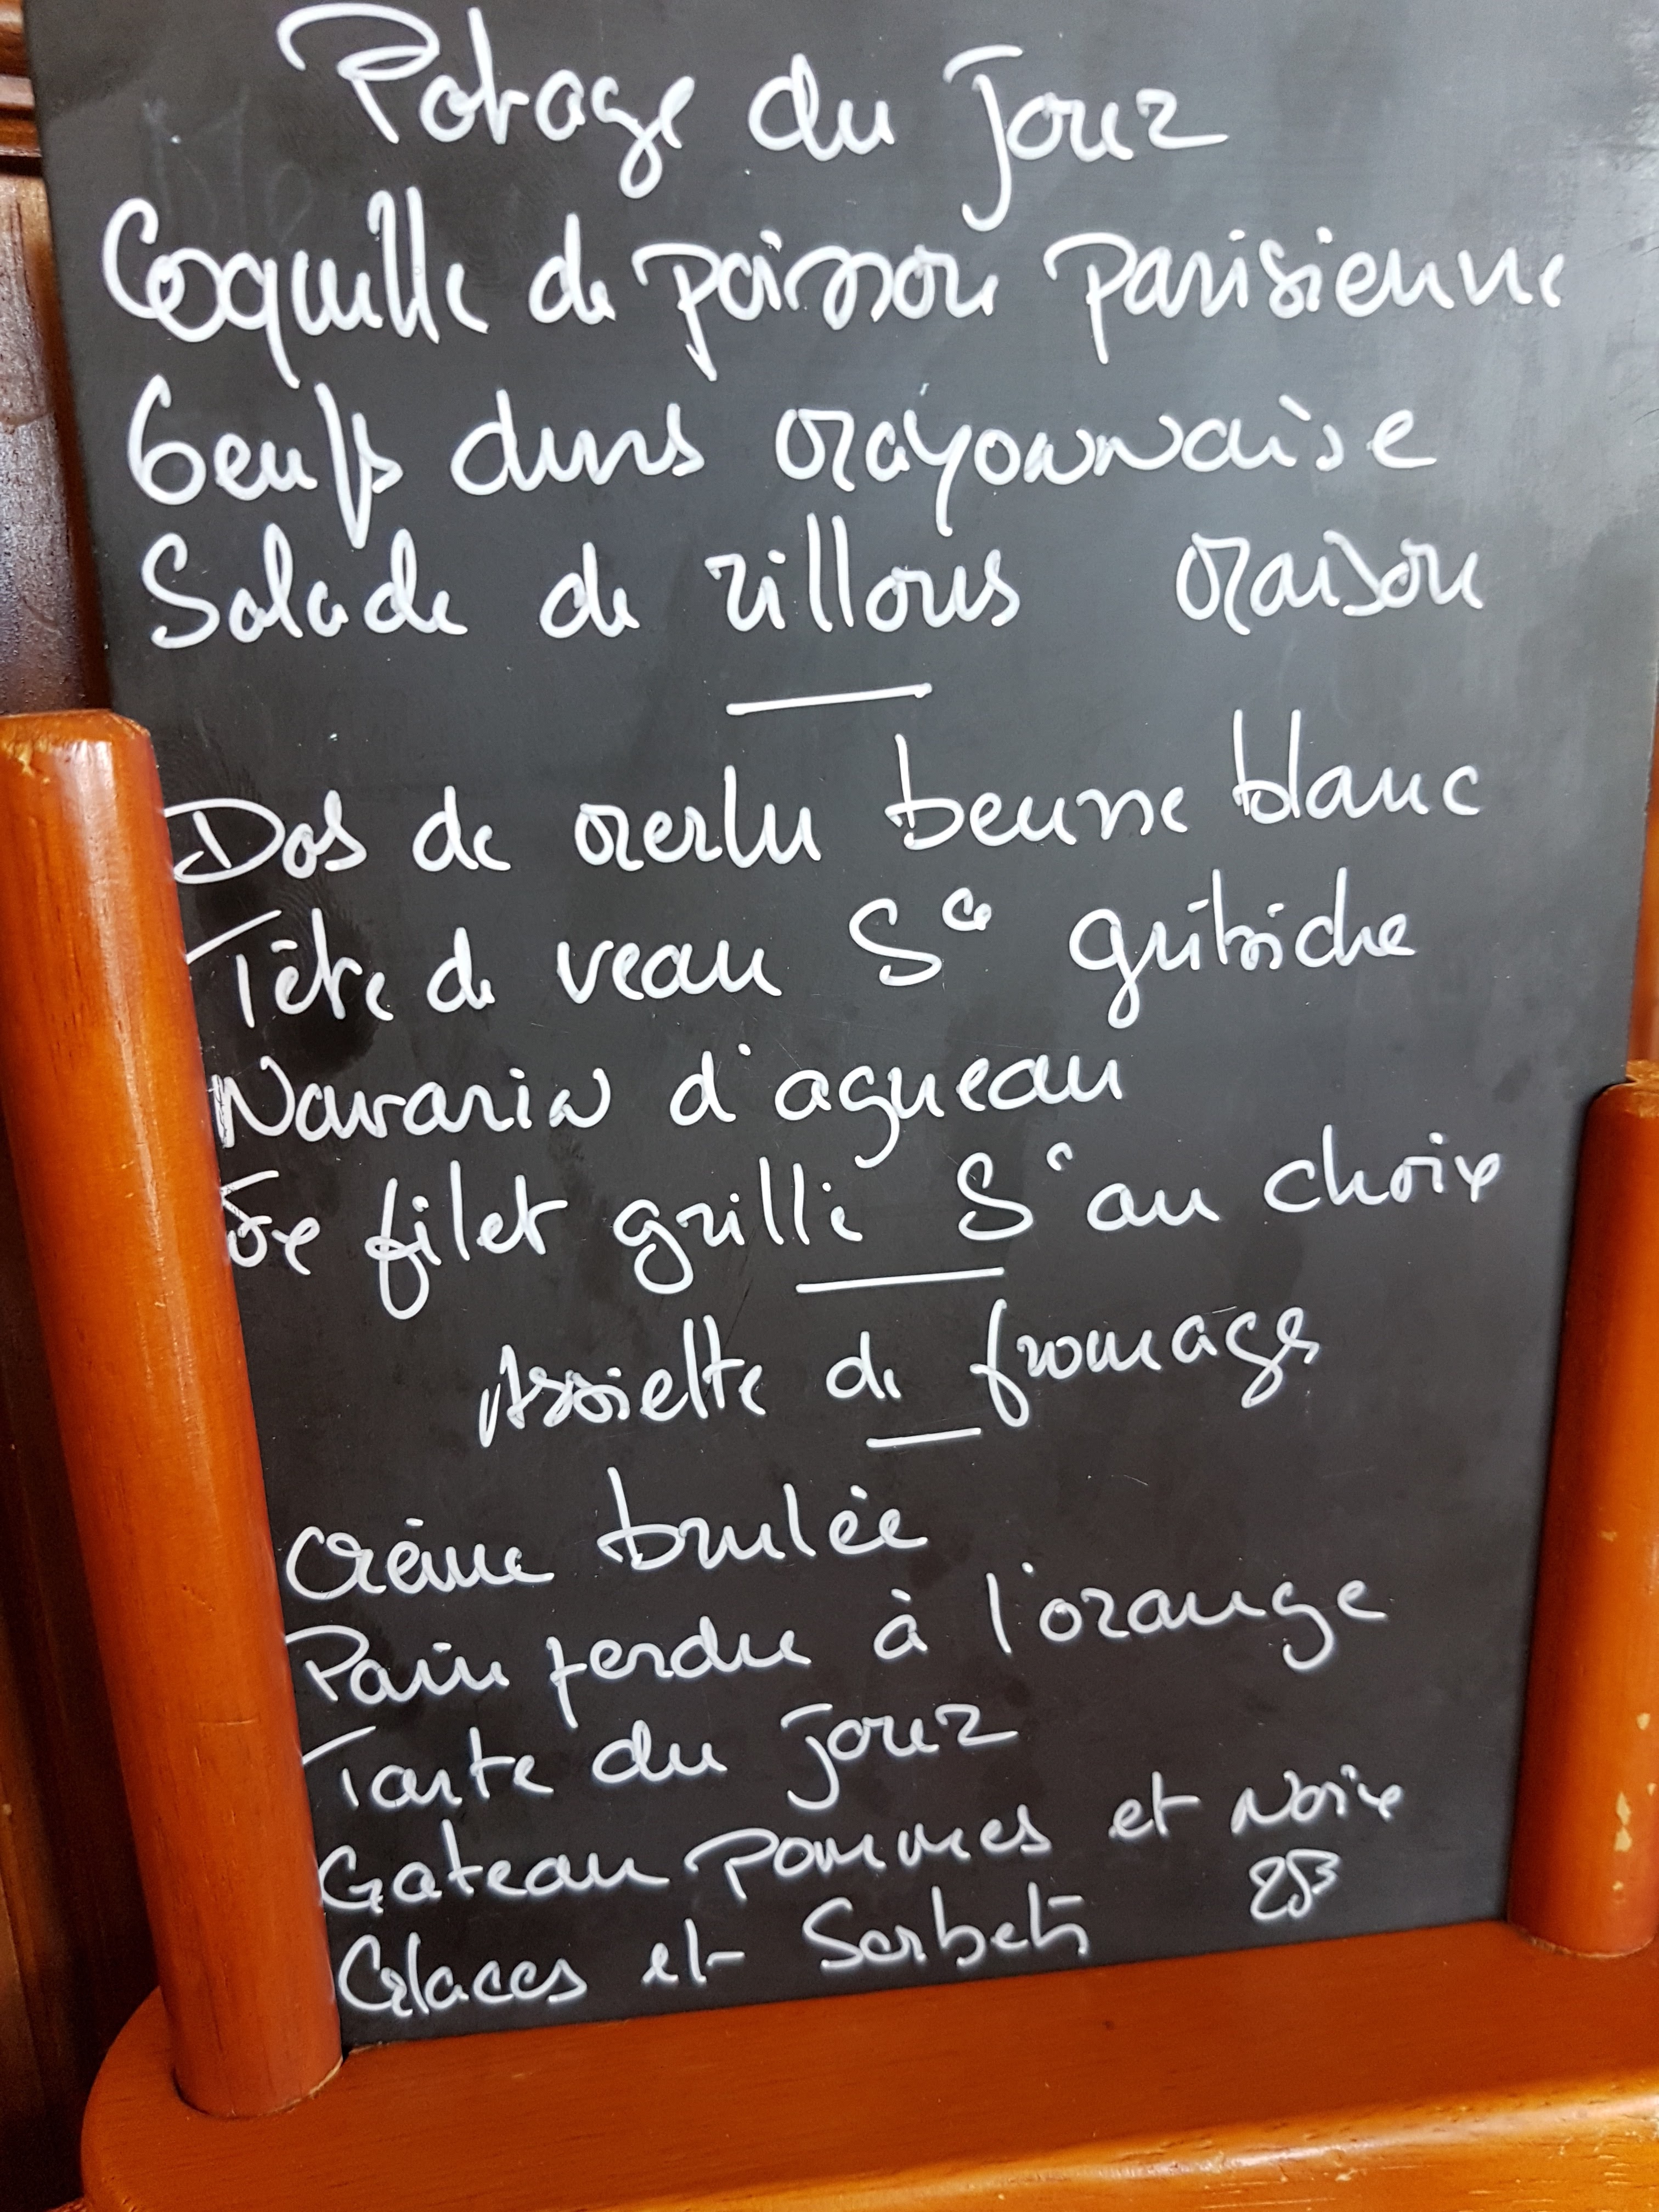 Potage du jour
Coquille de poisson parisienne
Oeufs durs mayonnaise
Salade de rillons maison
Dos de merlu beurre blanc
Tête de veau Sce gribiche
Navarin d'agneau
Fx filet grillé Sce au choix
Assiette de fromages
Crème brulée
Pain perdu à l'orange
Tarte du jour
Gateau pommes et Noix
Glaces et Sorbets